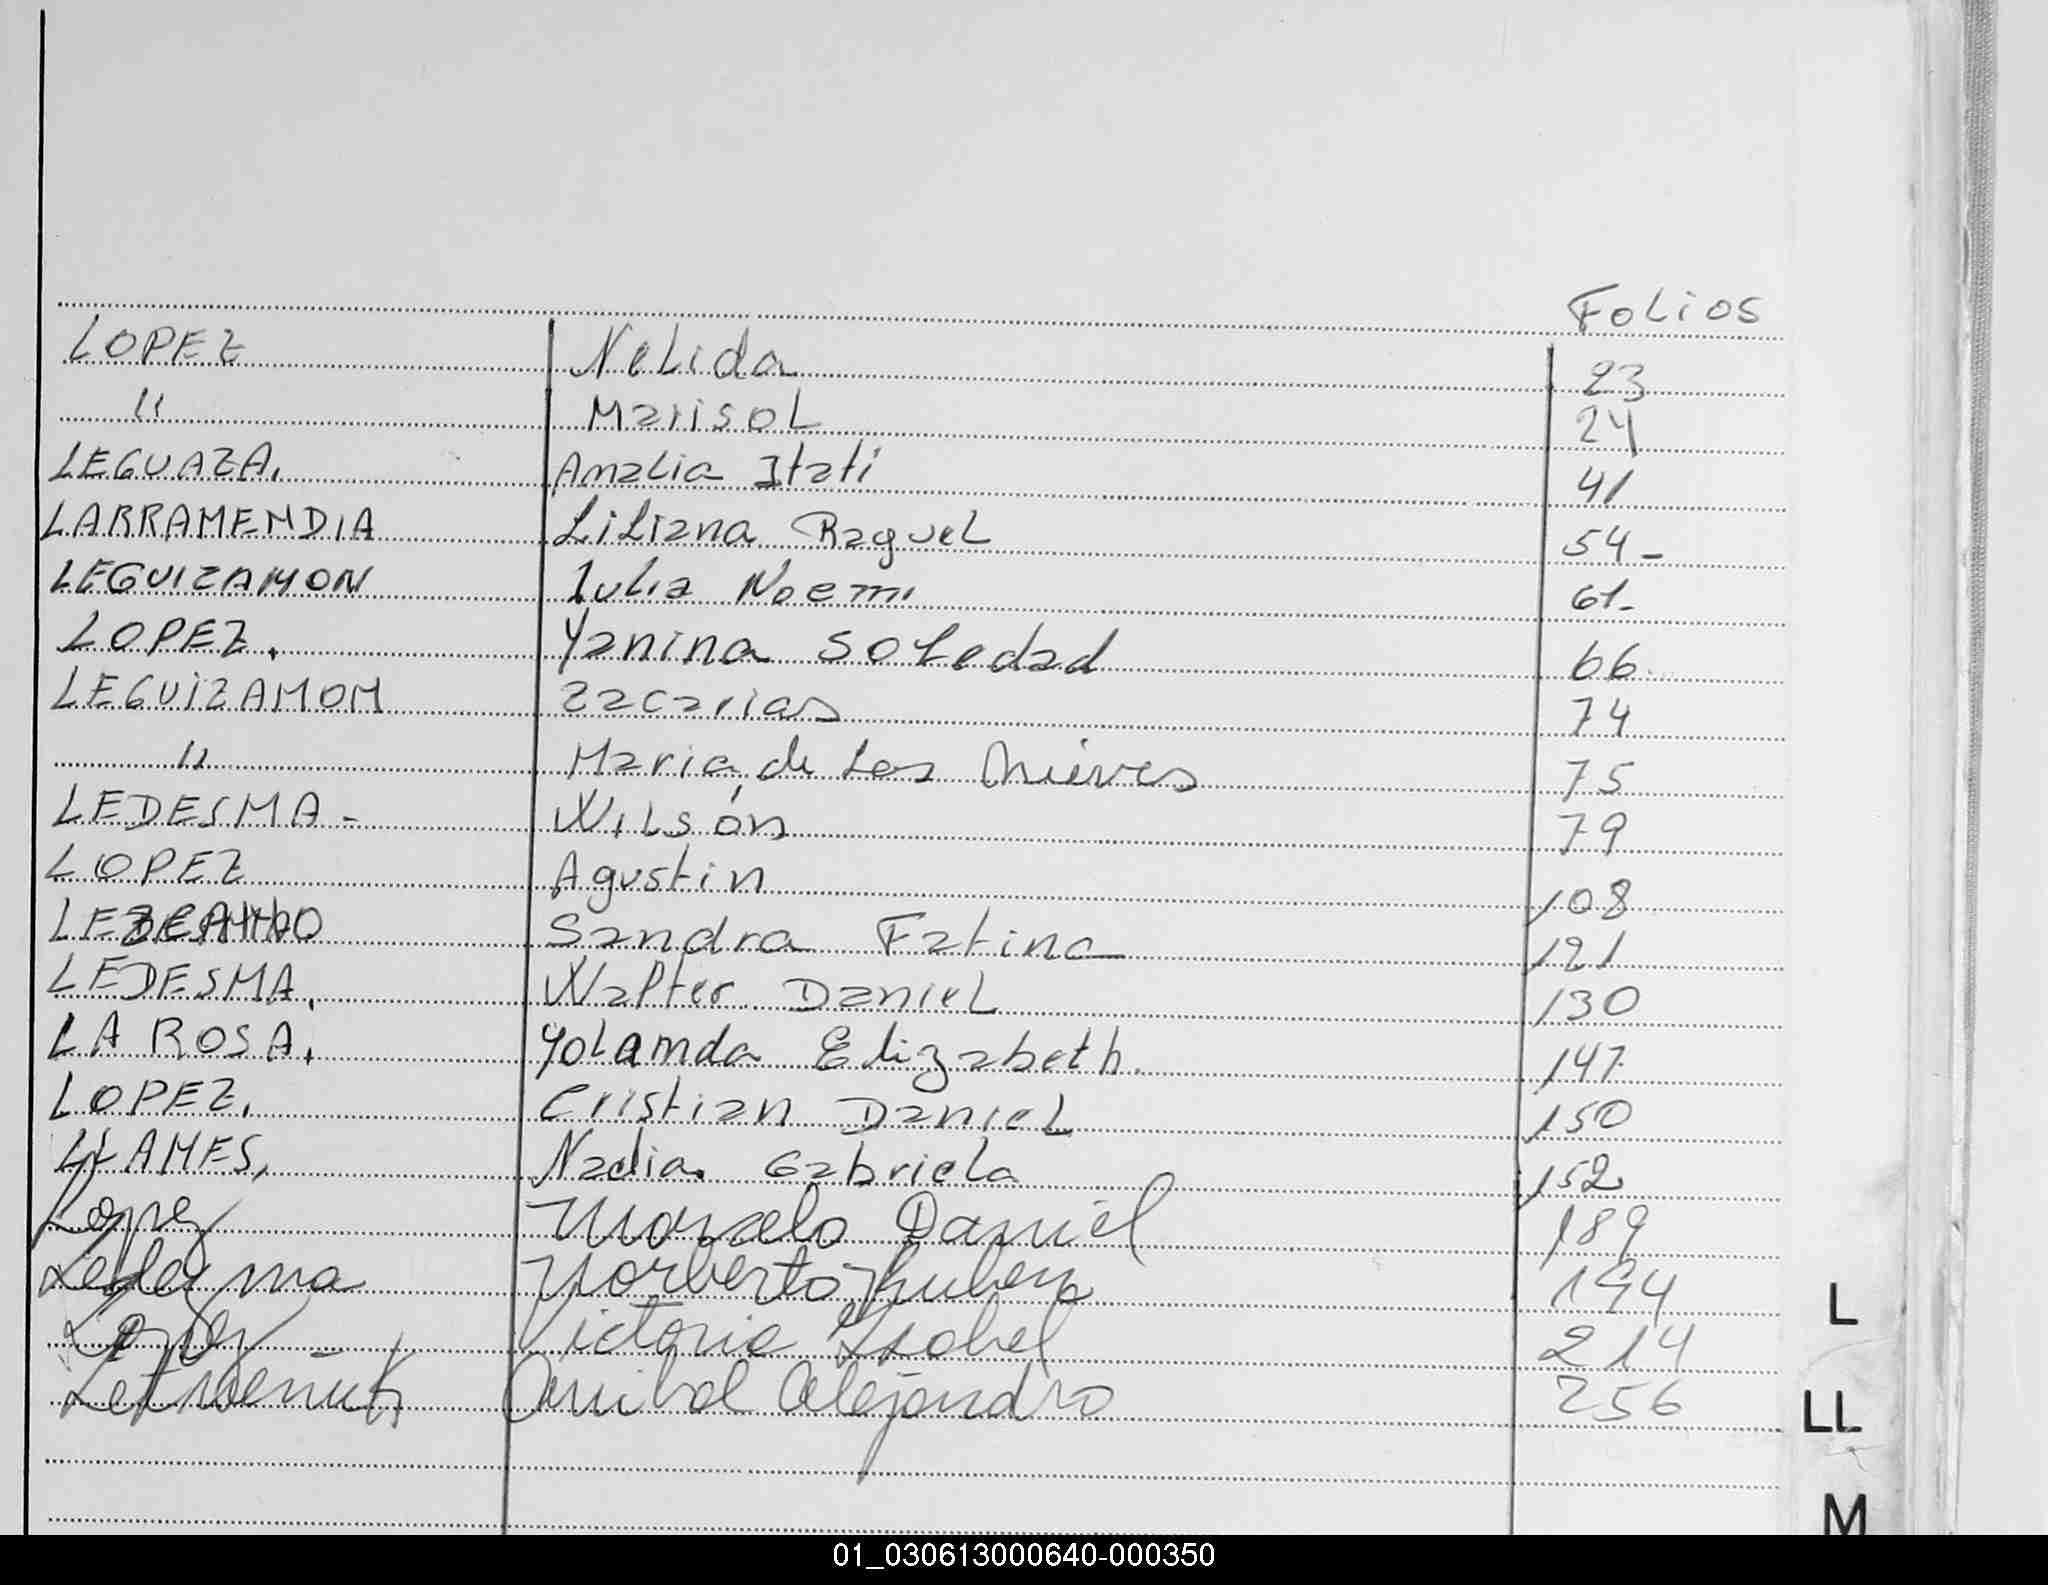 Folios
LOPEZ Nelida 23
" Marisol 24
LEGUAZA. Analia Itati 41
LARRAMENDIA Liliana Raquel 54-
LEGUIZAMON Iulia Noemi 61-
LOPEZ. Yanina Soledad 66
LEGUIZAMON Zacarias 74
" Maria de Las Nieves 75
LEDESMA - Wilsón 79
LOPEZ Agustin 108
Sandra Fatima 121
LEDESMA. Walter Daniel 130
LA ROSA. Yolanda Elizabeth. 147
LOPEZ. Cristian Daniel 150
LLAMES, Nadia Gabriela 152
Lopez Marcelo Daniel 189
Ledesma Norberto Ruben 194
Lopez Victoria Isabel 214
Anibal Alejandro 256
L
LL
M
01_030613000640-000350